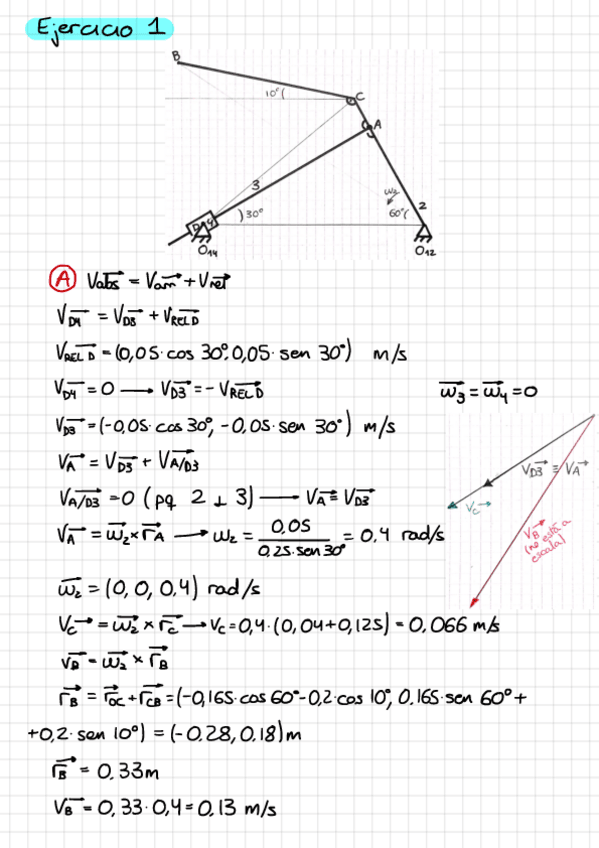 Ejercicio 1
B
10°
C
A
3
ω2
2
D 4
30°
60°
O14
O12
Ⓐ Vabs = Varr + Vrel
VD4 = VD3 + VREL D
VREL D = (0,05·cos 30°, 0,05·sen 30°) m/s
VD4 = 0 → VD3 = -VREL D
ω3 = ω4 = 0
VD3 = (-0,05·cos 30°, -0,05·sen 30°) m/s
VA = VD3 + VA/D3
VA/D3 = 0 (pq 2 ⊥ 3) → VA ≡ VD3
VA = ω2 × rA → ω2 = 0,05 / 0,25·sen 30° = 0,4 rad/s
VD3 ≡ VA
VC
VB
(no está a
escala)
ω2 = (0, 0, 0,4) rad/s
VC = ω2 × rC → VC = 0,4·(0,04+0,125) = 0,066 m/s
VB = ω2 × rB
rB = rOC + rCB = (-0,165·cos 60° - 0,2·cos 10°, 0,165·sen 60° +
+0,2·sen 10°) = (-0.28, 0.18) m
rB = 0,33m
VB = 0,33·0,4 = 0,13 m/s